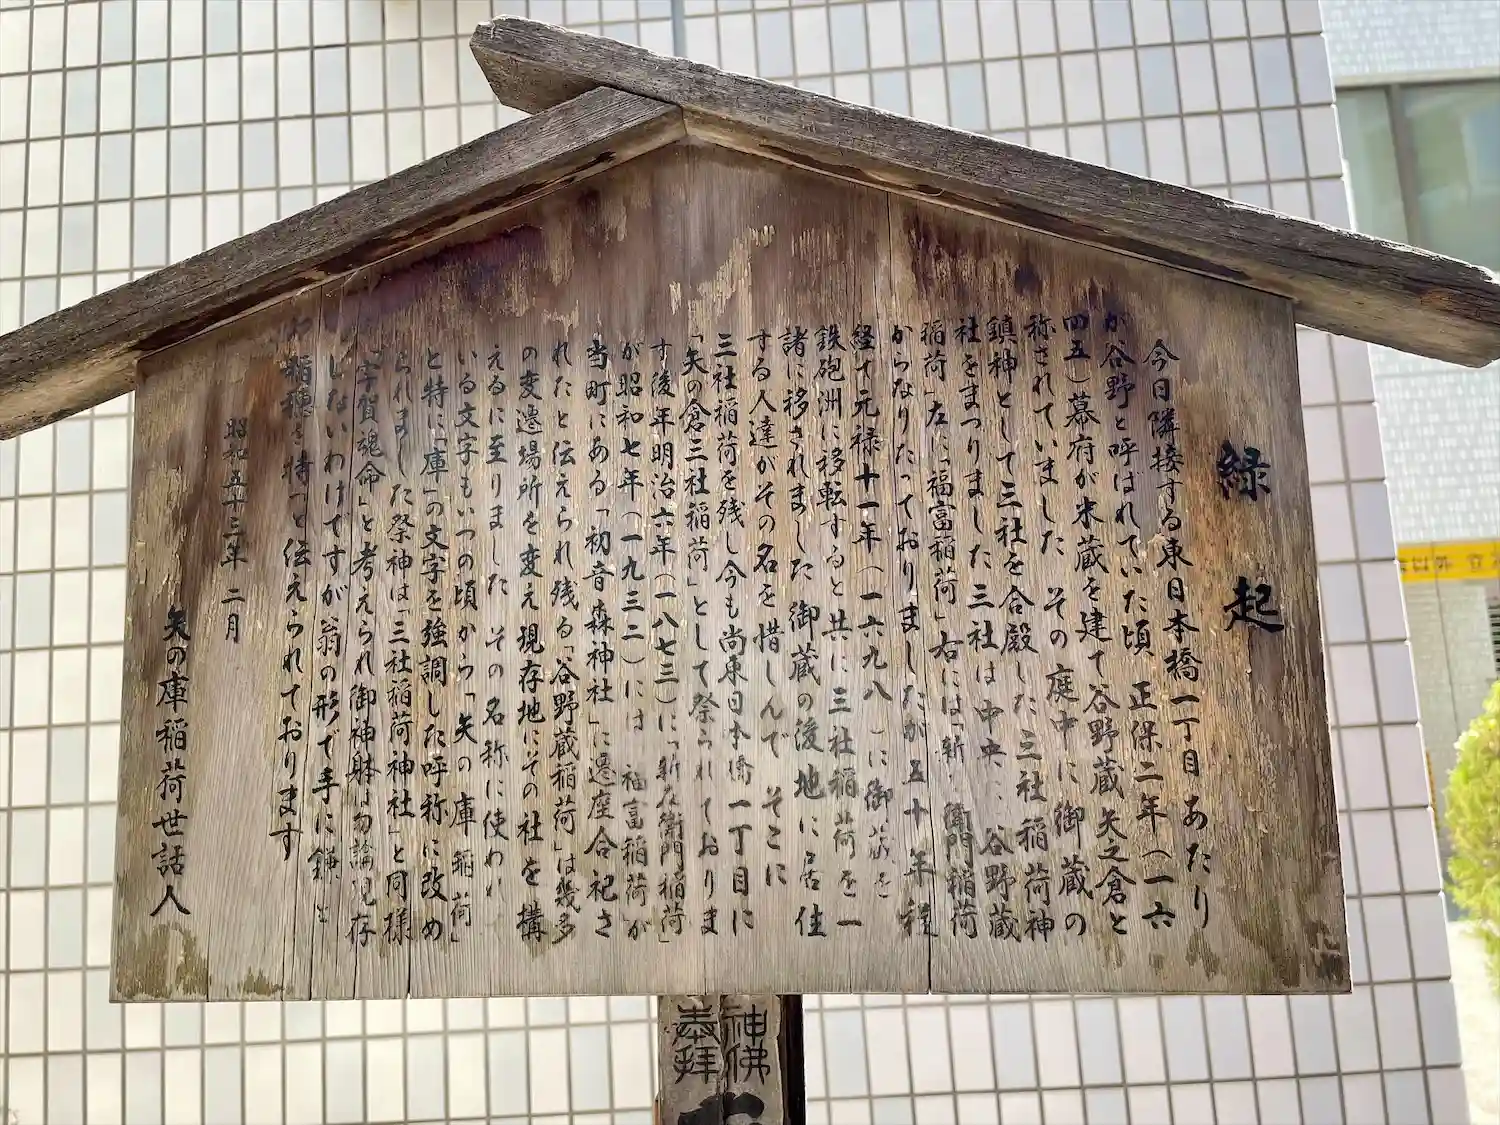 縁起
今日隣接する東日本橋一丁目あたり
が谷野と呼ばれていた頃 正保二年(一六
四五)幕府が米蔵を建て谷野蔵矢之倉と
称されていました その庭中に御蔵の
鎮神として三社を合殿した三社稲荷神
社をまつりました三社は中央 谷野蔵
稲荷」左に「福富稲荷」右には 衛門稲荷
からなりたっておりましたが五十年程
経て元禄十一年(一六九八 )に御蔵を
鉄砲洲に移転すると共に三社稲荷を一
諸に移されました御蔵の後地に居住
する人達がその名を惜しんで そこに
三社稲荷を残し今も尚東日本橋一丁目に
「矢の倉三社稲荷」として祭られておりま
す後年明治六年(一八七三)に 衛門稲荷」
が昭和七年(一九三二)には 福富稲荷 が
当町にある「初音森神社」に遷座合祀さ
れたと伝えられ残る「谷野蔵稲荷」は幾多
の変遷場所を変え現存地にその社を構
えるに至りました その名称に使われ
いる文字もいつの頃から「矢の庫 稲荷」
と特に「庫」の文字を強調した呼称に改め
られました祭神は「三社稲荷神社」と同様
字賀魂命」と考えられ御神躰は勿論現存
しないわけですが翁の形で手に鎌と
稲穂を持 と伝えられております
昭和五十三年 二月
矢の庫稲荷世話人
神佛
奉拝